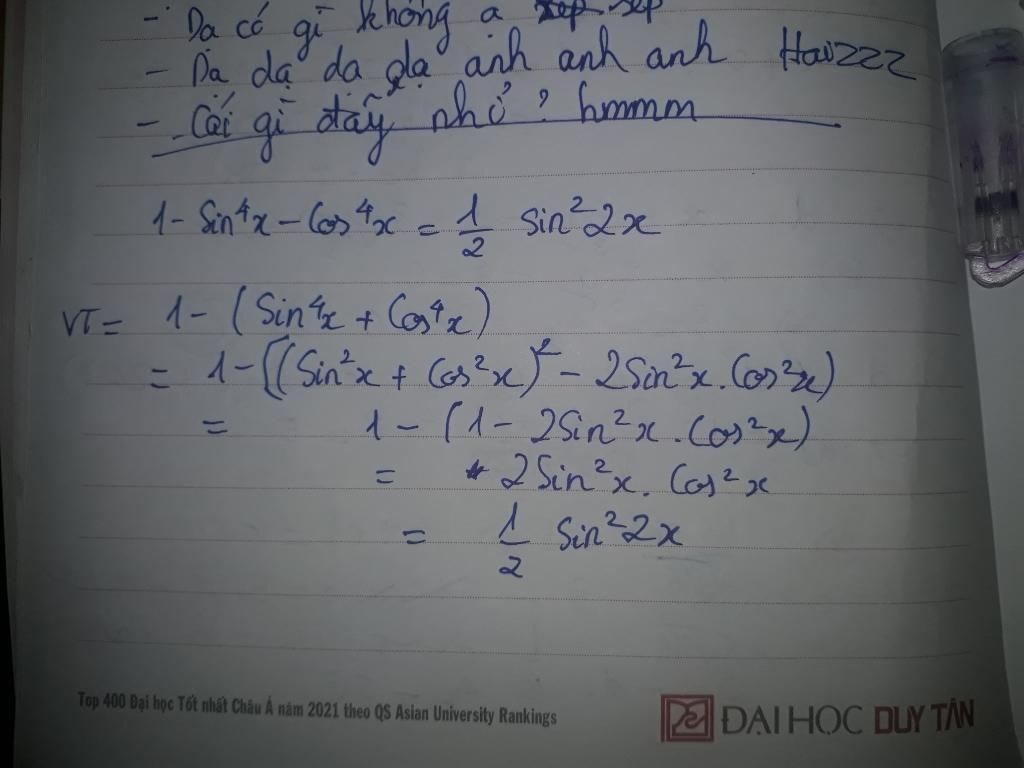 - Dạ có gì không ạ
- Dạ dạ dạ dạ anh anh anh Haizzz
- Cái gì đấy nhở? hmmm
1 - Sin⁴x - Cos⁴x = 1/2 sin²2x
VT = 1 - (Sin⁴x + Cos⁴x)
= 1 - [(Sin²x + Cos²x)² - 2Sin²x . Cos²x)
= 1 - (1 - 2Sin²x . Cos²x)
= 2Sin²x . Cos²x
= 1/2 Sin²2x
Top 400 Đại học Tốt nhất Châu Á năm 2021 theo QS Asian University Rankings
ĐẠI HỌC DUY TÂN